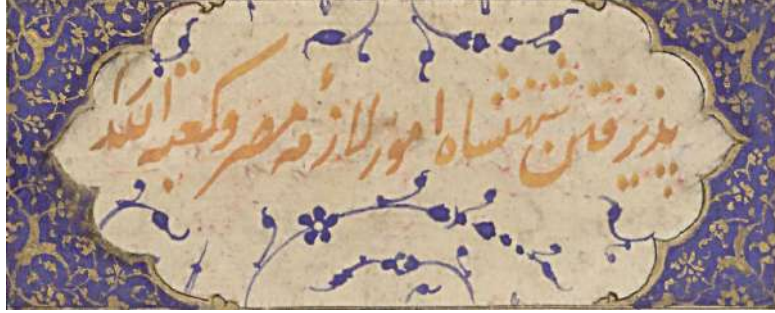 پذیرفتن شهنشاه امور لازمهٔ مصر و کعبة الله را